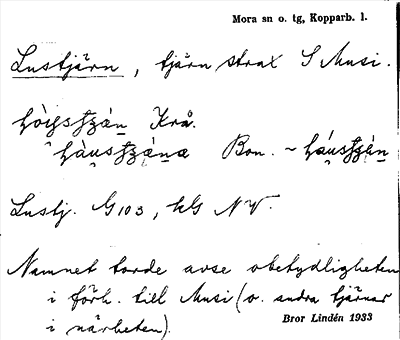 Mora sn o. tg, Kopparb. l.
Lustjärn, tjärn strax S Musi.
Krå.
Bon. ~
Lustj. G103, kG NV.
Namnet torde avse obetydligheten
i förh. till Musi (o. andra tjärnar
i närheten).
Bror Lindén 1933